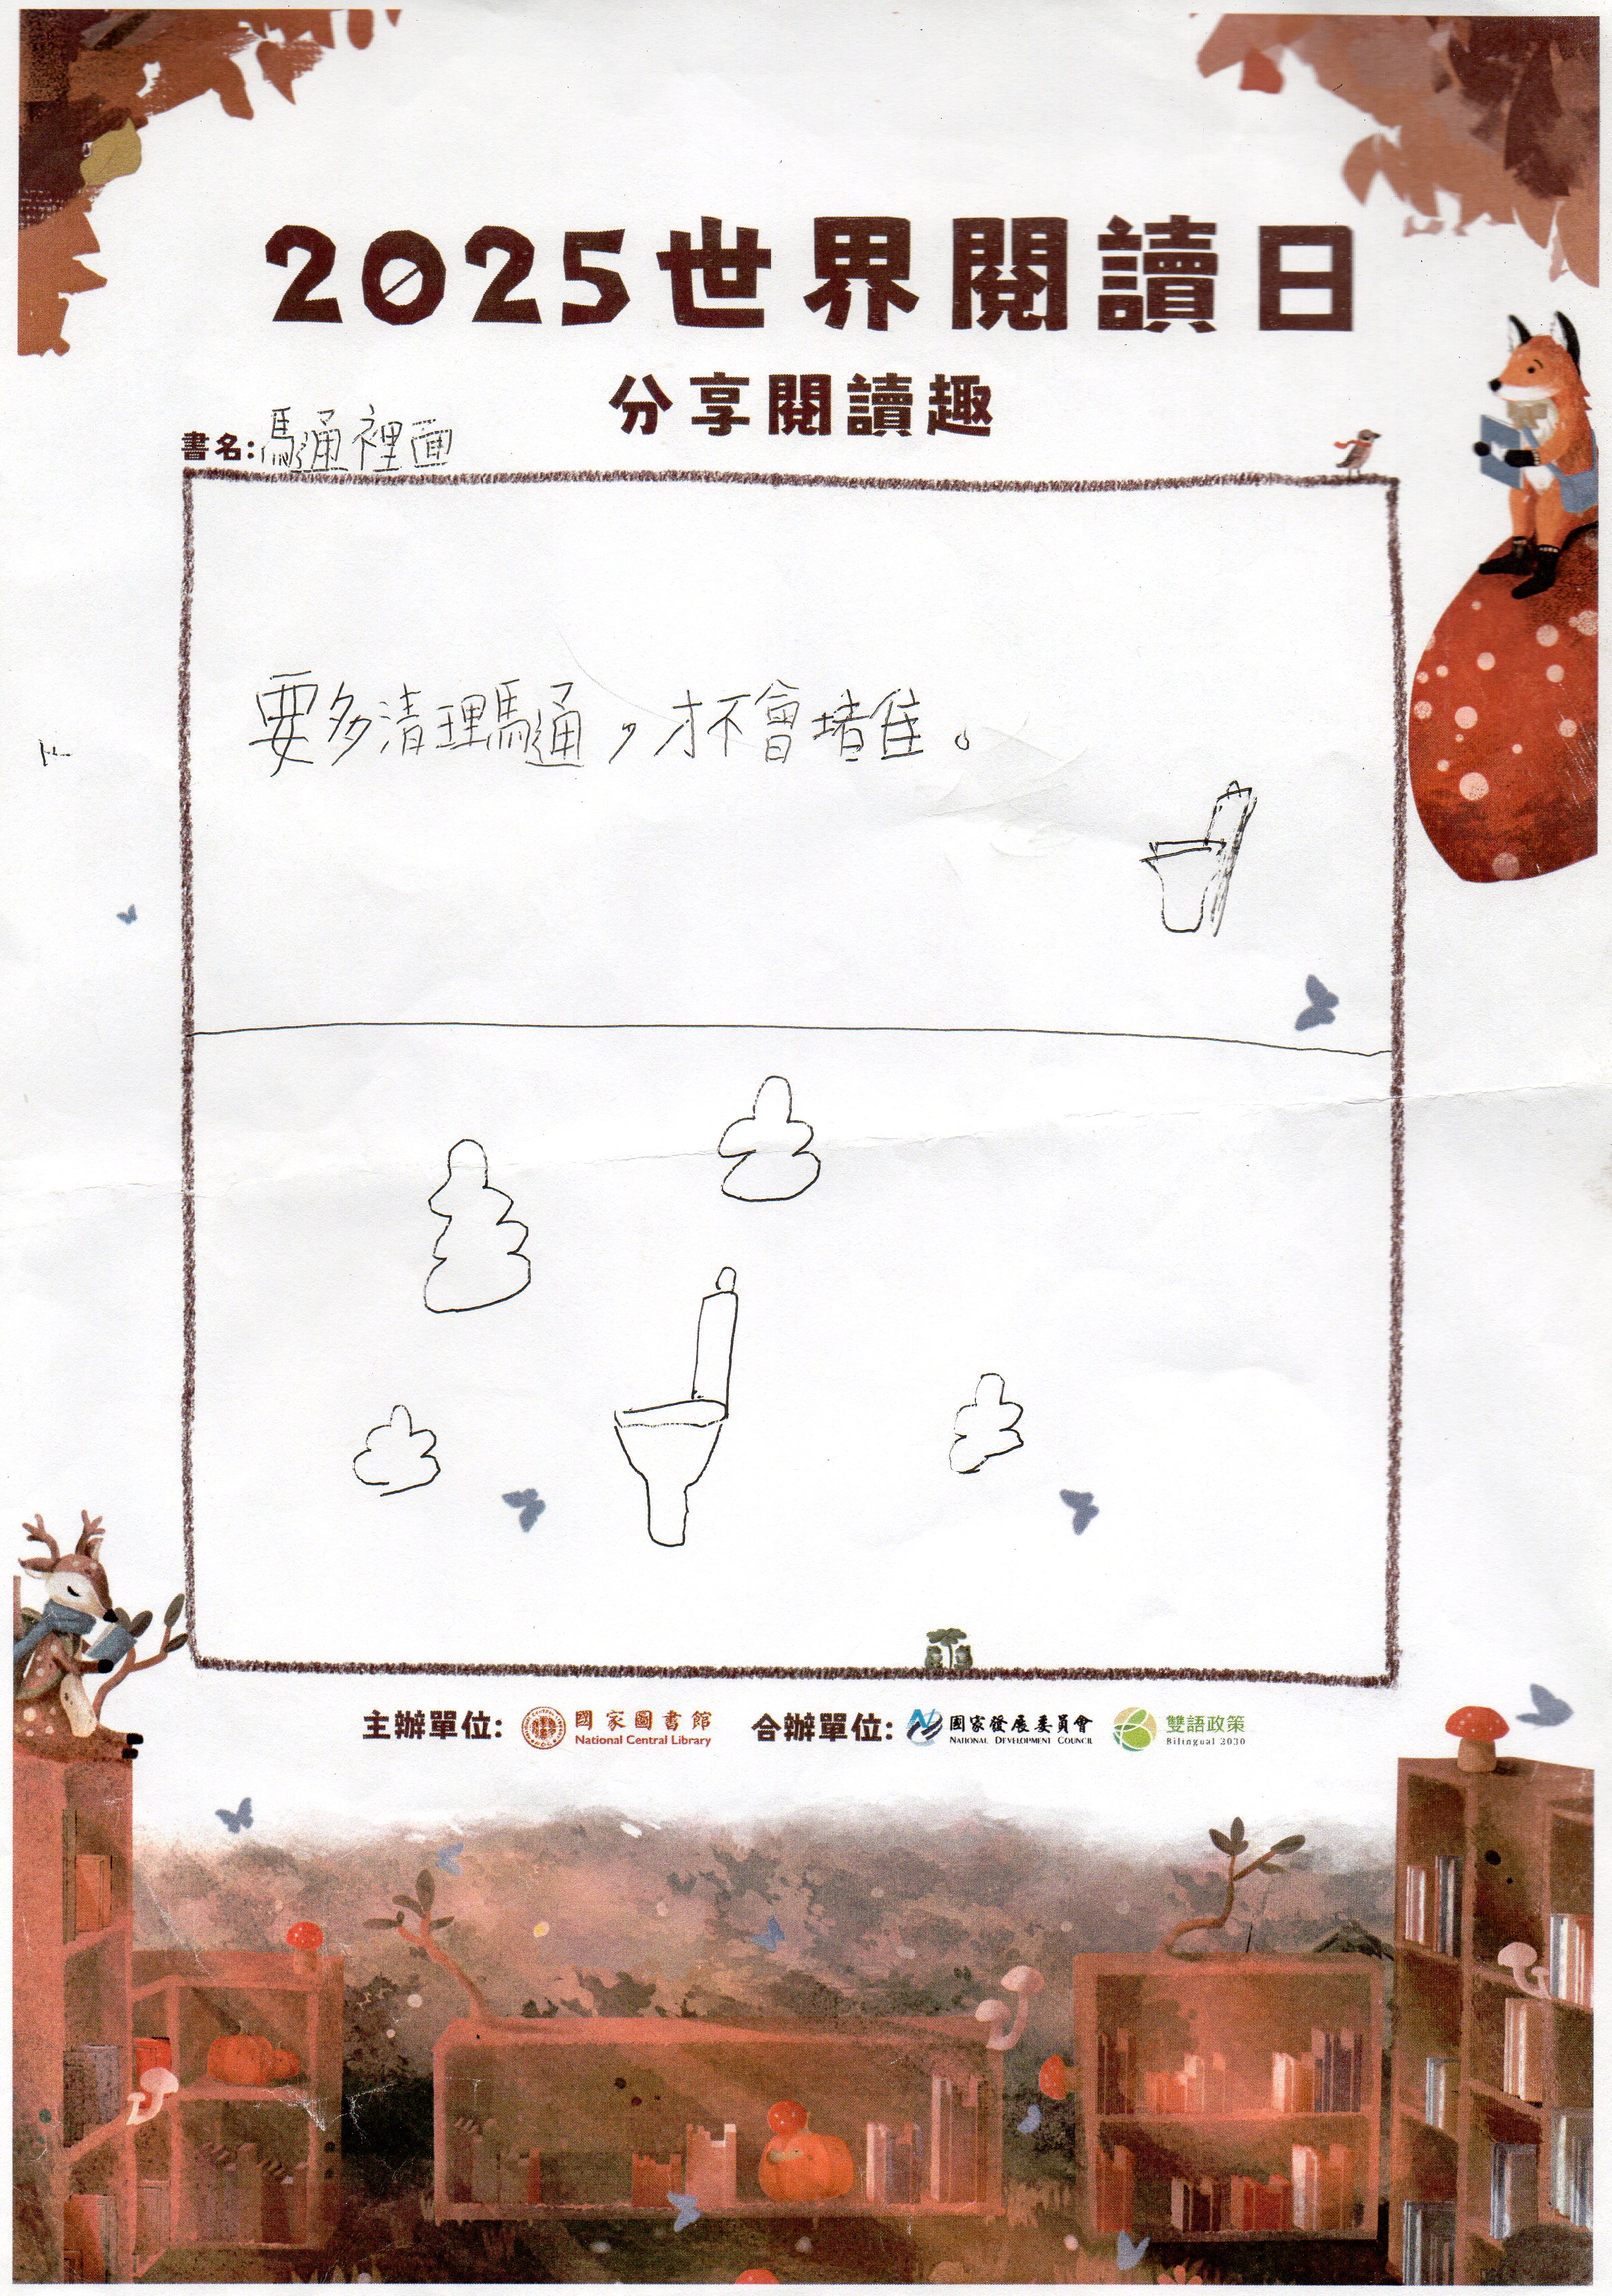 2025世界閱讀日
分享閱讀趣
書名:馬通裡面
要多清理馬通，才不會堵住。
主辦單位: 國家圖書館 National Central Library 合辦單位: 國家發展委員會 NATIONAL DEVELOPMENT COUNCIL 雙語政策 Bilingual 2030